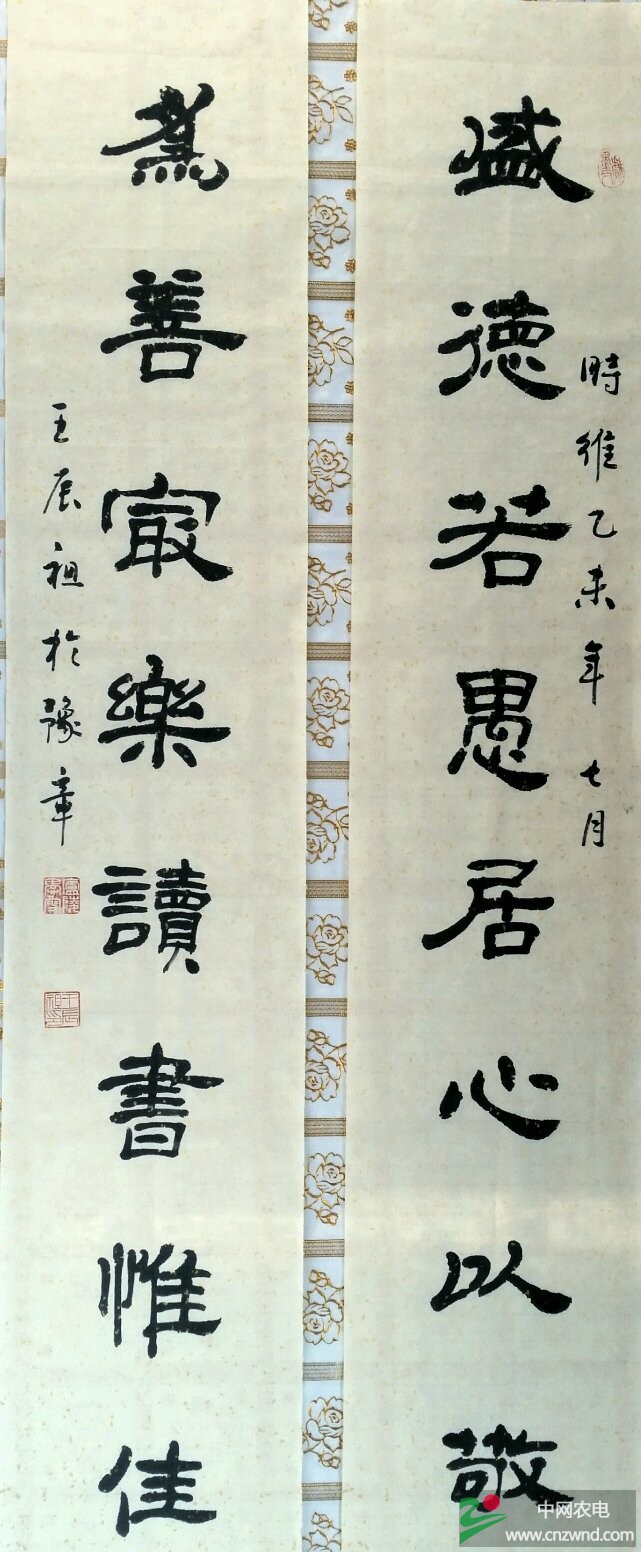 盛德若愚居心以敬
時維乙未年七月
為善冣樂讀書惟佳
王辰祖於豫章
中网农电
www.cnzwnd.com